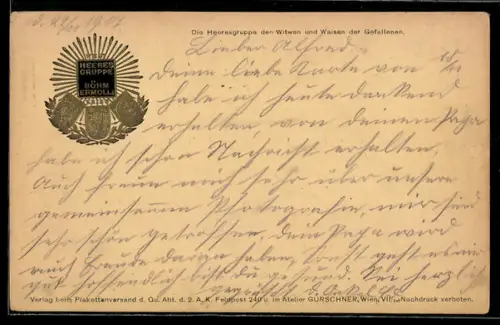 d. 22/10 1917
Die Heeresgruppe den Witwen und Waisen der Gefallenen.
HEERES
GRUPPE
BÖHM
ERMOLLI
Lieber Alfred.
Deine liebe Karte von 15/10
habe ich heute dankend
erhalten, von deinem Papa
habe ich schon Nachricht erhalten,
Auch freue mich sehr über unsere
gemeinsamen Photografie, wir sind
sehr schön getroffen, dein Papa wird
auch Freude daran haben, sonst geht es mir
gut hoffentlich bist du gesund. Sei herzlich
gegrüsst d. Onkel
Verlag beim Plakettenversand d. Qu. Abt. d. 2. A. K. Feldpost 240 u. im Atelier GURSCHNER, Wien, VII. Nachdruck verboten.